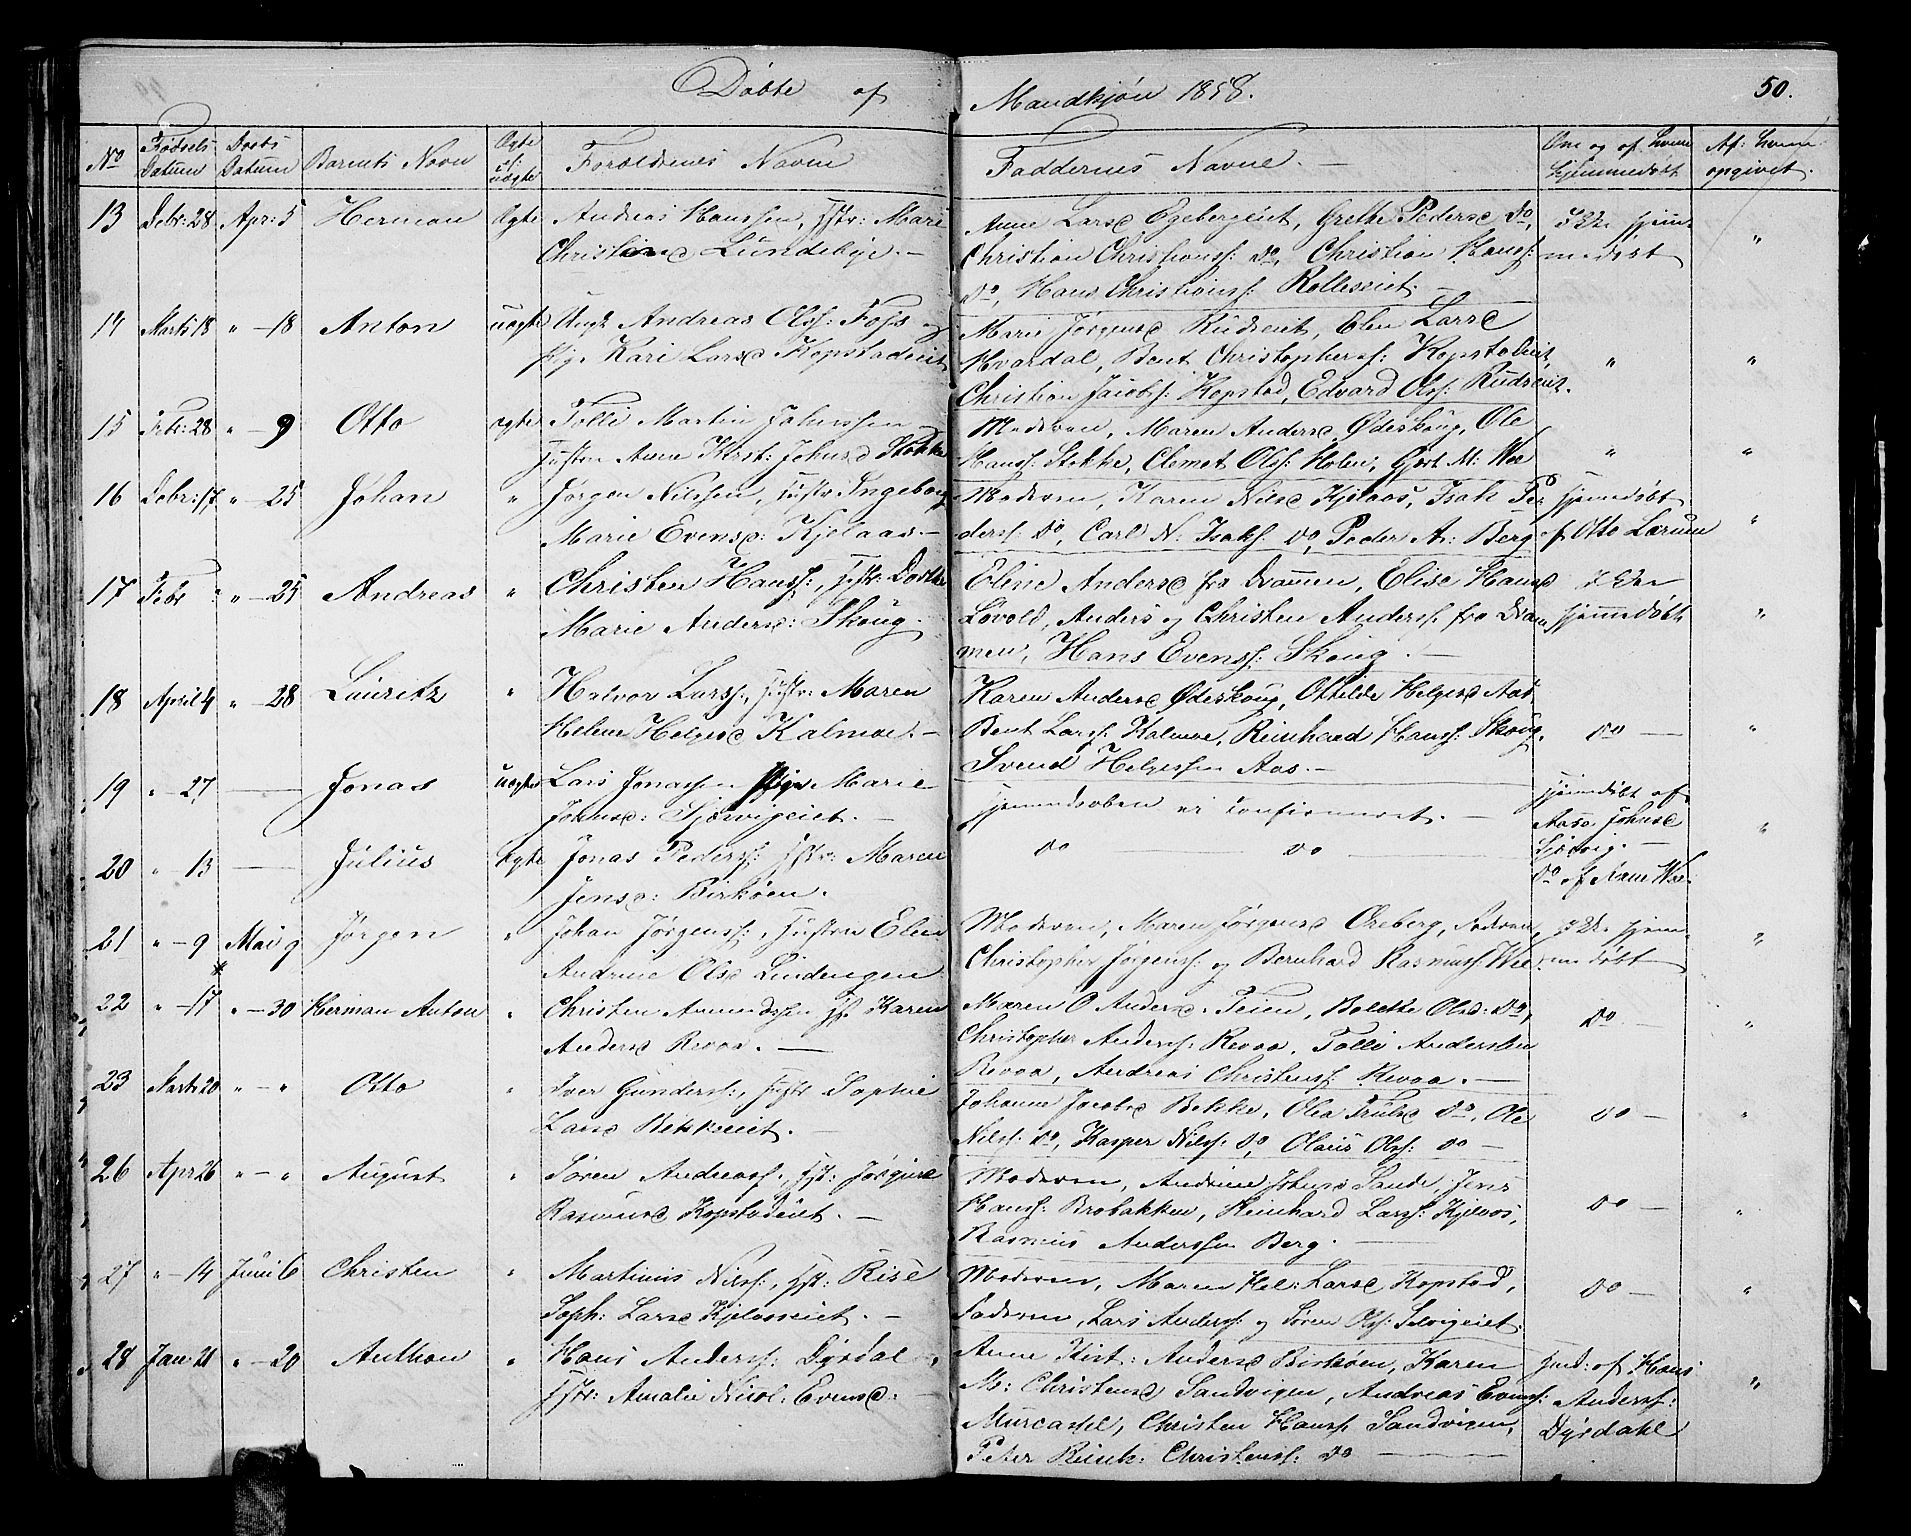 Døbte af Mandkjøn 1858. 50.
No Fødsels Datum Daabs Datum Barnets Navn Ægte el: uægte Forældrenes Navne Faddernes Navne. — Om og af hvem hjemmedøbt Af: hvem opgivet.
13 Febr: 28 Apr: 5 Herman Ægte Andreas Hanssen, Hstr: Marie
Christine Lundebye. —
Anne Larsd Egebergeiet, Grethe Pedersd Do,
Christian Christianss: Do, Christian Hanss:
Do, Hans Christianss: Rolleseiet. —
hjem-
medøbt "
14 Marts 18 " — 18 Anton uægte Ungk Andreas Olss: Foss og
Pg. Kari Larsd Kopstadeiet
Marie Jørgensd Rudseiet, Elen Larsd
Hvardal, Bent Christopherss: Kopstadeiet,
Christian Jacobss: Kopstad, Edvard Olss: Rudseiet.
" "
15 Febr: 28 " — 9 Otto ægte Tolle Martin Johnssen
Hustru Anne Kirst: Johnsd Stokke
Moderen, Maren Andersd Øderskoug, Ole
Hanss: Stokke, Clemet Olss: Holen, Gjort M: Wee
" "
16 Febr: 17 " — 25 Johan " Jørgen Nilssen, Hustr: Ingeborg
Marie Evensd: Kjelaas. —
Moderen, Karen Nilsd Kjelaas, Isak Pe-
derss: Do, Carl N: Isaks. Do, Peder A: Berg
hjemmedøbt
af Otto Lærum "
17 Febr " — 25 Andreas " Christen Hanss:, Hstr: Dorthe
Marie Andersd: Skoug.
Eline Andersd fra Drammen, Elise Hansd
Løvold, Anders og Christen Anderss: fra Dram-
men, Hans Evenss: Skoug. —
hjemmedøbt "
18 April 4 " — 28 Lauritz " Halvor Larss:, Hustr: Maren
Helene Helgesd Kalmoe. —
Karen Andersd Øderskoug, Ottilde Helgesd Aas,
Bent Larss: Kalmoe, Reinhard Hanss: Skoug,
Svend Helgessen Aas. —
Do — "
19 " — 27 — Jonas uægte Lars Jonassen Pige Marie
Johnsd: Sjørvigeiet. —
Hjemmedaaben er confirmeret. —
hjemdøbt af
Aase Johnsd
Sjørvig. — "
20 " — 13 — Julius Ægte Jonas Pederss: Hstr: Maren
Jensd: Birkøen.
Do — Do
Do af Anne Wee.
21 " — 9 Mai 9 Jørgen " Johan Jørgenss:, Hustru Elen
Andrine Olsd Lindengen
Moderen, Maren Jørgensd Oreberg, Faderen,
Christopher Jørgenss: og Bernhard Rasmuss: Wee.
hjem-
medøbt "
22 " — 17 " — 30 Herman Anton " Christen Amundssen Hst Karen
Andersd Revaa. —
Maren O Andersd: Teien, Bolette Olsd: Do,
Christopher Anderss: Revaa, Tolle Anderssen
Revaa, Andreas Christenss: Revaa. —
Do "
23 Marts 20 " — " Otto " Iver Gunderss:, Hustr Sophie
Larsd Bekkeeiet. —
Johanne Jacobsd Bekke, Olea Trulsd Do, Ole
Nilss: Do, Kasper Nilss: Do, Olaus Olss: Do —
Do — "
26 Apr 26 " — " August " Søren Andreass:, Hst: Jørgine
Rasmusd Kopstadeiet. —
Moderen, Andrine Johnsd Sande, Jens
Hanss: Brobakken, Reinhard Larss: Kjelaas,
Rasmus Anderssen Berg. —
Do — "
27 " — 14 Juni 6 Christen " Martinus Nilss:, Hst: Rise
Soph: Larsd Kjelaaseiet. —
Moderen, Maren Hel: Larsd Kopstad,
Faderen, Lars Anderss: og Søren Olss: Selvigeiet.
Do — "
28 Jan 21 " — 20 Anthon " Hans Anderss: Dyrdal,
Hstr: Amalie Nicol: Evensd:
Anne Kirst: Andersd Birkøen, Karen
M: Christensd Sandvigen, Andreas Evenss:
Murcastel, Christen Hanss: Sandvigen,
Peter Rinik: Christenss: Do —
hmd: af Hans
Anderss:
Dyrdahl "